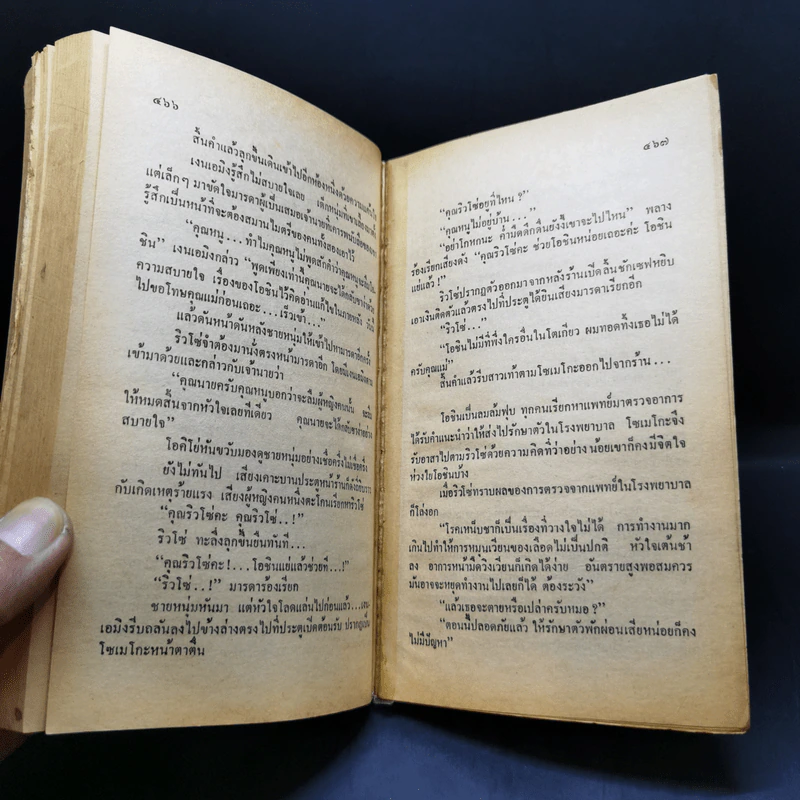 ๔๖๖
สิ้นคำแล้วลุกขึ้นเดินเข้าไปอีกห้องหนึ่งด้วยความ
เงนเอมิงรู้สึกไม่สบายใจเลย เด็กหนุ่มที่เขาเลี้ยงมา
แต่เล็กๆ มาขัดใจมารดาผู้เป็นเสมอเจ้านายที่เคารพนับถือของ
รู้สึกเป็นหน้าที่จะต้องสมานไมตรีของคนทั้งสองเอาไว้
“คุณหนู...ทำไมคุณหนูไม่พูดสักคำว่าคุณหนูจะลืมโอ
ชิน” เงนเอมิงกล่าว “พูดเพียงเท่านี้คุณนายจะได้กลับซาง่าด้วย
ความสบายใจ เรื่องของโอชินไว้คิดอ่านแก้ไขในภายหลัง
ไปขอโทษคุณแม่ก่อนเถอะ...เร็วเข้า...”
แล้วดันหน้าดันหลังชายหนุ่มให้เข้าไปหามารดาอีกครั้ง
ริวโซ่จำต้องมานั่งตรงหน้ามารดาอีก โดยมีเงนเอมิงตาม
เข้ามาด้วยและกล่าวกับเจ้านายว่า
“คุณนายครับคุณหนูบอกว่าจะลืมผู้หญิงคนนั้น จะลืม
ให้หมดสิ้นจากหัวใจเลยทีเดียว คุณนายจะได้กลับซาง่าอย่าง
สบายใจ”
โอคิโยหันขวับมองดูชายหนุ่มอย่างเชื่อครึ่งไม่เชื่อครึ่ง
ยังไม่ทันไป เสียงเคาะบานประตูหน้าร้านก็ดังถี่ยิบราว
กับเกิดเหตุร้ายแรง เสียงผู้หญิงคนหนึ่งตะโกนเรียกหาริวโซ่
“คุณริวโซ่คะ คุณริวโซ่..!”
ริวโซ่ ทะลึ่งลุกขึ้นยืนทันที...
“คุณริวโซ่คะ!...โอชินแย่แล้วช่วยที...!”
“ริวโซ่..!” มารดาร้องเรียก
ชายหนุ่มหันมา แต่หัวใจโลดแล่นไปก่อนแล้ว...เงน
เอมิงรีบถลันลงไปข้างล่างตรงไปที่ประตูเปิดต้อนรับ ปรากฏเป็น
โซเมโกะหน้าตาตื่น
๔๖๗
“คุณริวโซ่อยู่ที่ไหน?”
“คุณหนูไม่อยู่บ้าน...”
“อย่าโกหกนะ ค่ำมืดดึกดื่นยังงี้เขาจะไปไหน” พลาง
ร้องเรียกเสียงดัง “คุณริวโซ่คะ ช่วยโอชินหน่อยเถอะค่ะ โอชิน
แย่แล้ว!”
ริวโซ่ปรากฏตัวออกมาจากหลังร้านเปิดลิ้นชักเซฟหยิบ
เอาเงินติดตัวแล้วตรงไปที่ประตูได้ยินเสียงมารดาเรียกอีก
“ริวโซ่...”
“โอชินไม่มีที่พึ่งใครอื่นในโตเกียว ผมทอดทิ้งเธอไม่ได้
ครับคุณแม่”
สิ้นคำแล้วรีบสาวเท้าตามโซเมโกะออกไปจากร้าน...
โอชินเป็นลมล้มฟุบ ทุกคนเรียกหาแพทย์มาตรวจอาการ
ได้รับคำแนะนำว่าให้ส่งไปรักษาตัวในโรงพยาบาล โซเมโกะจึง
รับอาสาไปตามริวโซ่ด้วยความคิดที่ว่าอย่างน้อยเขาก็คงมีจิตใจ
ห่วงใยโอชินบ้าง
เมื่อริวโซ่ทราบผลของการตรวจจากแพทย์ในโรงพยาบาล
ก็โล่งอก
“โรคเหน็บชาก็เป็นเรื่องที่วางใจไม่ได้ การทำงานมาก
เกินไปทำให้การหมุนเวียนของเลือดไม่เป็นปกติ หัวใจเต้นช้า
ลง อาการหน้ามืดวิงเวียนก็เกิดได้ง่าย อันตรายสูงพอสมควร
มันอาจจะหยุดทำงานไปเลยก็ได้ ต้องระวัง”
“แล้วเธอจะตายหรือเปล่าครับหมอ?”
“ตอนนี้ปลอดภัยแล้ว ให้รักษาตัวพักผ่อนเสียหน่อยก็คง
ไม่มีปัญหา”